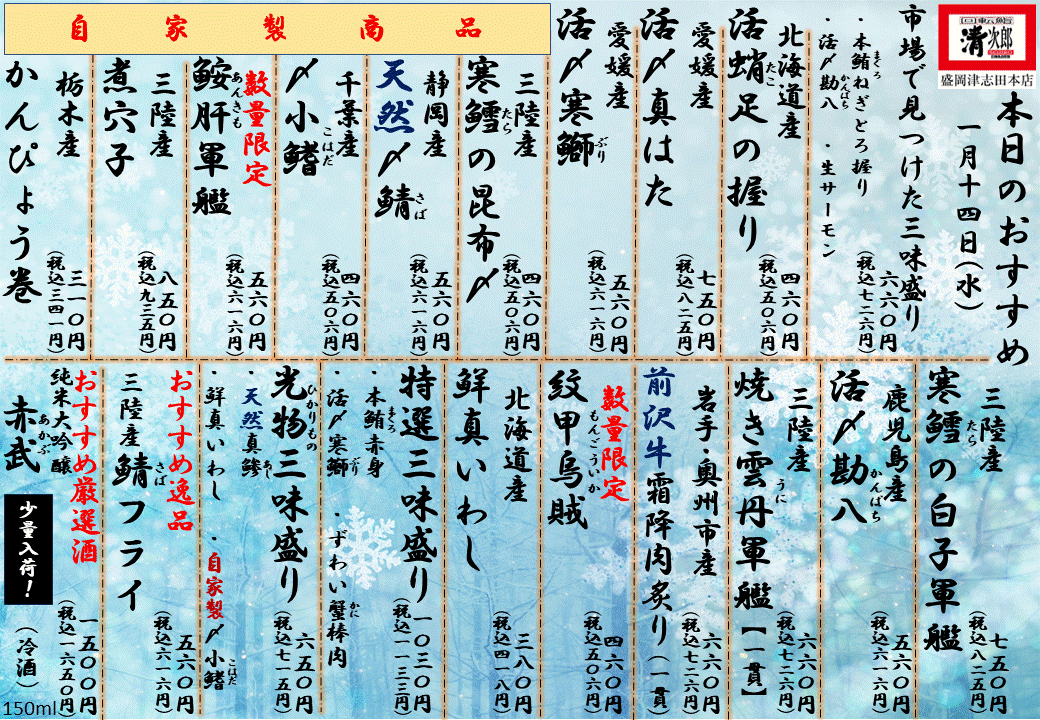 回転鮨
清次郎
盛岡津志田本店
本日のおすすめ
一月十四日(水)
市場で見つけた三味盛り
・本鮪ねぎとろ握り
まぐろ
・活〆勘八
かんぱち
・生サーモン
六六〇円
(税込七二六円)
北海道産
活蛸足の握り
たこ
四六〇円
(税込五〇六円)
愛媛産
活〆真はた
七五〇円
(税込八二五円)
愛媛産
活〆寒鰤
ぶり
五六〇円
(税込六一六円)
自家製商品
三陸産
寒鱈の昆布〆
たら
四六〇円
(税込五〇六円)
静岡産
天然〆鯖
さば
五六〇円
(税込六一六円)
千葉産
〆小鰭
こはだ
四六〇円
(税込五〇六円)
数量限定
鮟肝軍艦
あんきも
五六〇円
(税込六一六円)
三陸産
煮穴子
八五〇円
(税込九三五円)
栃木産
かんぴょう巻
三一〇円
(税込三四一円)
三陸産
寒鱈の白子軍艦
たら
七五〇円
(税込八二五円)
鹿児島産
活〆勘八
かんぱち
五六〇円
(税込六一六円)
三陸産
焼き雲丹軍艦【一貫】
うに
六六〇円
(税込七二六円)
岩手・奥州市産
前沢牛霜降肉炙り(一貫)
六六〇円
(税込七二六円)
数量限定
紋甲烏賊
もんごういか
四六〇円
(税込五〇六円)
北海道産
鮮真いわし
三八〇円
(税込四一八円)
特選三味盛り
・本鮪赤身
まぐろ
・活〆寒鰤
ぶり
・ずわい蟹棒肉
かに
一〇三〇円
(税込一一三三円)
光物三味盛り
ひかりもの
・天然真鯵
あじ
・鮮真いわし
・自家製〆小鰭
こはだ
六五〇円
(税込七一五円)
おすすめ逸品
三陸産鯖フライ
さば
五六〇円
(税込六一六円)
おすすめ厳選酒
純米大吟醸
赤武
あかぶ
少量入荷！
(冷酒)
150ml
一五〇〇円
(税込一六五〇円)